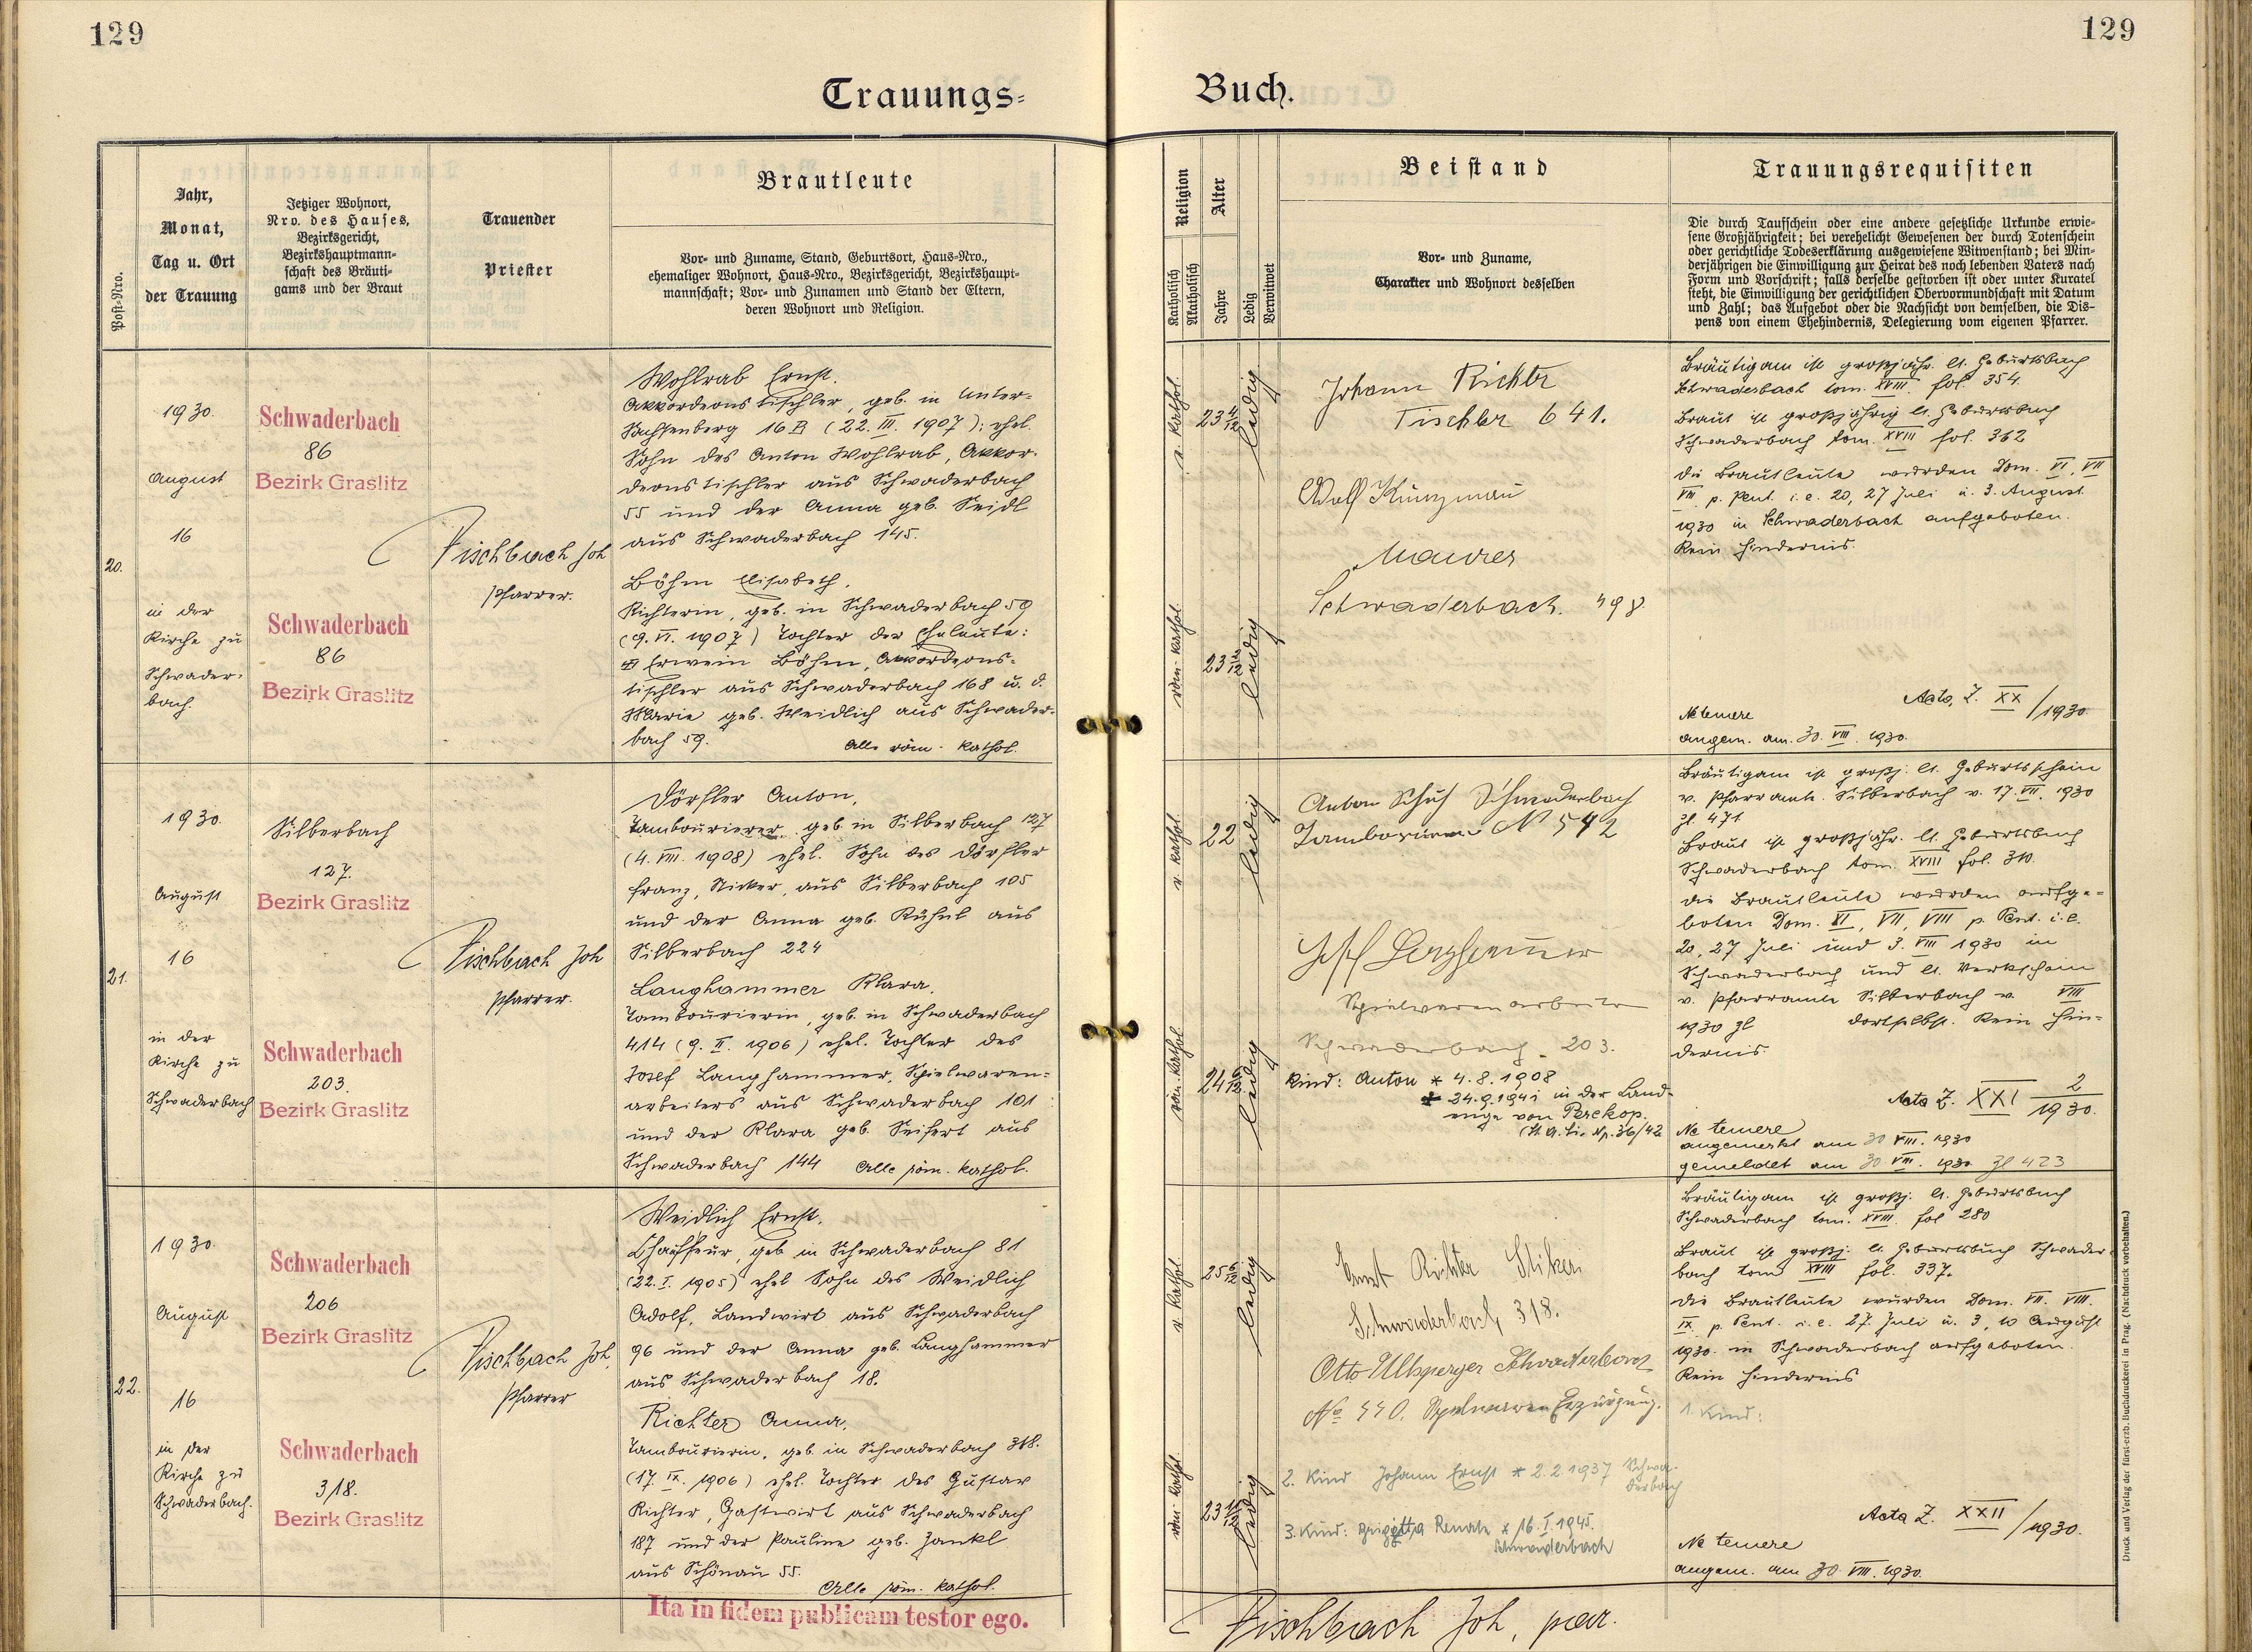 129
129
Trauungs=
Buch.
Post-Nro.
Jahr,
Monat,
Tag u. Ort
der Trauung
Jetziger Wohnort,
Nro. des Hauses,
Bezirksgericht,
Bezirkshauptmann-
schaft des Bräuti-
gams und der Braut
Trauender
Priester
Brautleute
Vor- und Zuname, Stand, Geburtsort, Haus-Nro.,
ehemaliger Wohnort, Haus-Nro., Bezirksgericht, Bezirkshaupt-
mannschaft; Vor- und Zunamen und Stand der Eltern,
deren Wohnort und Religion.
Religion
Katholisch
Akatholisch
Alter
Jahre
Ledig
Verwitwet
Beistand
Vor- und Zuname,
Charakter und Wohnort desselben
Trauungsrequisiten
Die durch Taufschein oder eine andere gesetzliche Urkunde erwie-
sene Großjährigkeit; bei verehelicht Gewesenen der durch Totenschein
oder gerichtliche Todeserklärung ausgewiesene Witwenstand; bei Min-
derjährigen die Einwilligung zur Heirat des noch lebenden Vaters nach
Form und Vorschrift; falls derselbe gestorben ist oder unter Kuratel
steht, die Einwilligung der gerichtlichen Obervormundschaft mit Datum
und Zahl; das Aufgebot oder die Nachsicht von demselben, die Dis-
pens von einem Ehehindernis, Delegierung vom eigenen Pfarrer.
20.
1930.
August
16
in der
Kirche zu
Schwader-
bach.
Schwaderbach
86
Bezirk Graslitz
Schwaderbach
86
Bezirk Graslitz
Fischbach Joh
Pfarrer.
Wohlrab Ernst.
Akkordeonstischler, geb. in Unter-
Sachsenberg 16 B (22. III. 1907); ehel.
Sohn des Anton Wohlrab, Akkor-
deonstischler aus Schwaderbach
55 und der Anna geb. Seidl
aus Schwaderbach 145.
Böhm Elisabeth.
geb. in Schwaderbach 59
(9. VI. 1907) Tochter der Eheleute:
Erwein Böhm, Akkordeons-
tischler aus Schwaderbach 168 u. d.
Marie geb. Weidlich aus Schwader-
bach 59.
Alle röm. kathol.
r. kathol.
23
ledig
röm. kathol.
23 2/12
ledig
Johann Richter
Tischler 641.
Adolf Künzmann
Maurer
Schwaderbach. 498.
Bräutigam ist großjähr. lt. Geburtsbuch
Schwaderbach tom. XVIII. fol. 354.
Braut ist großjährig lt. Geburtsbuch
Schwaderbach tom. XVIII fol. 362
die Brautleute wurden Dom. VI, VII
VIII p. Pent. i. e. 20, 27 Juli u. 3. August
1930 in Schwaderbach aufgeboten.
Kein Hindernis.
Acta, Z. XX /1930.
Ne temere
angem. am. 30. VIII. 1930.
21.
1930.
August
16
in der
Kirche zu
Schwaderbach
Silberbach
127.
Bezirk Graslitz
Schwaderbach
203.
Bezirk Graslitz
Fischbach Joh
Pfarrer.
Dörfler Anton,
Tambourierer geb. in Silberbach 127
(4. VIII. 1908) ehel. Sohn des Dörfler
Franz, Sticker, aus Silberbach 105
und der Anna geb. Kühnl aus
Silberbach 224
Langhammer Klara,
Tambourierin, geb. in Schwaderbach
414 (9. II. 1906) ehel. Tochter des
Josef Langhammer, Spielwaren-
arbeiters aus Schwaderbach 101
und der Klara geb. Seifert aus
Schwaderbach 144 Alle röm. kathol.
r. kathol.
22
ledig
röm. kathol
24 6/12
ledig
Anton Schuh Schwaderbach
Tambourierer N 542
Josef Langhammer
Spielwarenarbeiter
Schwaderbach 203.
Kind: Anton * 4.8.1908
+ 24.9.1941 in der Land-
enge von Perekop.
Bräutigam ist großj. lt. Geburtsschein
v. Pfarramte Silberbach v. 17. VII. 1930
Zl 471
Braut ist großjähr. lt. Geburtsbuch
Schwaderbach tom. XVIII fol. 310.
die Brautleute wurden aufge-
boten Dom. XI, VII, VIII p. Pent. i. e.
20, 27 Juli und 3. VIII 1930 in
Schwaderbach und lt. Verkschein
v. Pfarramte Silberbach v. VIII
1930 Zl dortselbst. Kein Hin-
dernis.
Acta Z. XXI 2/1930.
Ne temere
angemerkt am 30 VIII. 1930
gemeldet am 30 VIII. 1930 Zl 423
22.
1930.
August
16
in der
Kirche zu
Schwaderbach.
Schwaderbach
206
Bezirk Graslitz
Schwaderbach
318.
Bezirk Graslitz
Fischbach Joh.
Pfarrer
Weidlich Ernst.
Chauffeur, geb in Schwaderbach 81
(22. I. 1905) ehel Sohn des Weidlich
Adolf, Landwirt aus Schwaderbach
96 und der Anna geb. Langhammer
aus Schwaderbach 18.
Richter Anna,
Tambourierin, geb. in Schwaderbach 318.
(17. IX. 1906) ehel. Tochter des Gustav
Richter, Gastwirt aus Schwaderbach
187 und der Pauline geb. Zankl
aus Schönau 55.
Alle röm. kathol.
r kathol.
25 6/12
ledig
röm. kathol.
23
ledig
Ernst Richter
Schwaderbach 318.
Otto Ullsperger Schwaderbach
No 440. Spielwaren Erzeugung.
2. Kind Johann Ernst * 2.2 1937 Schwa-
derbach
3. Kind: Brigitta Renate * 16. I. 1945.
Schwaderbach
Bräutigam ist großj. lt. Geburtsbuch
Schwaderbach tom. XVIII. fol 280
Braut ist großj. lt. Geburtsbuch Schwader-
bach tom XVIII fol. 337.
die Brautleute wurden Dom. VII. VIII.
IX. p. Pent. i. e. 27. Juli u. 3, 10 August
1930. in Schwaderbach aufgeboten.
Kein Hindernis
1. Kind:
Acta Z. XXII /1930.
Ne temere
angem. am 30. VIII. 1930.
Ita in fidem publicam testor ego.
Fischbach Joh, par.
Druck und Verlag der fürst-erzb. Buchdruckerei in Prag. (Nachdruck vorbehalten.)